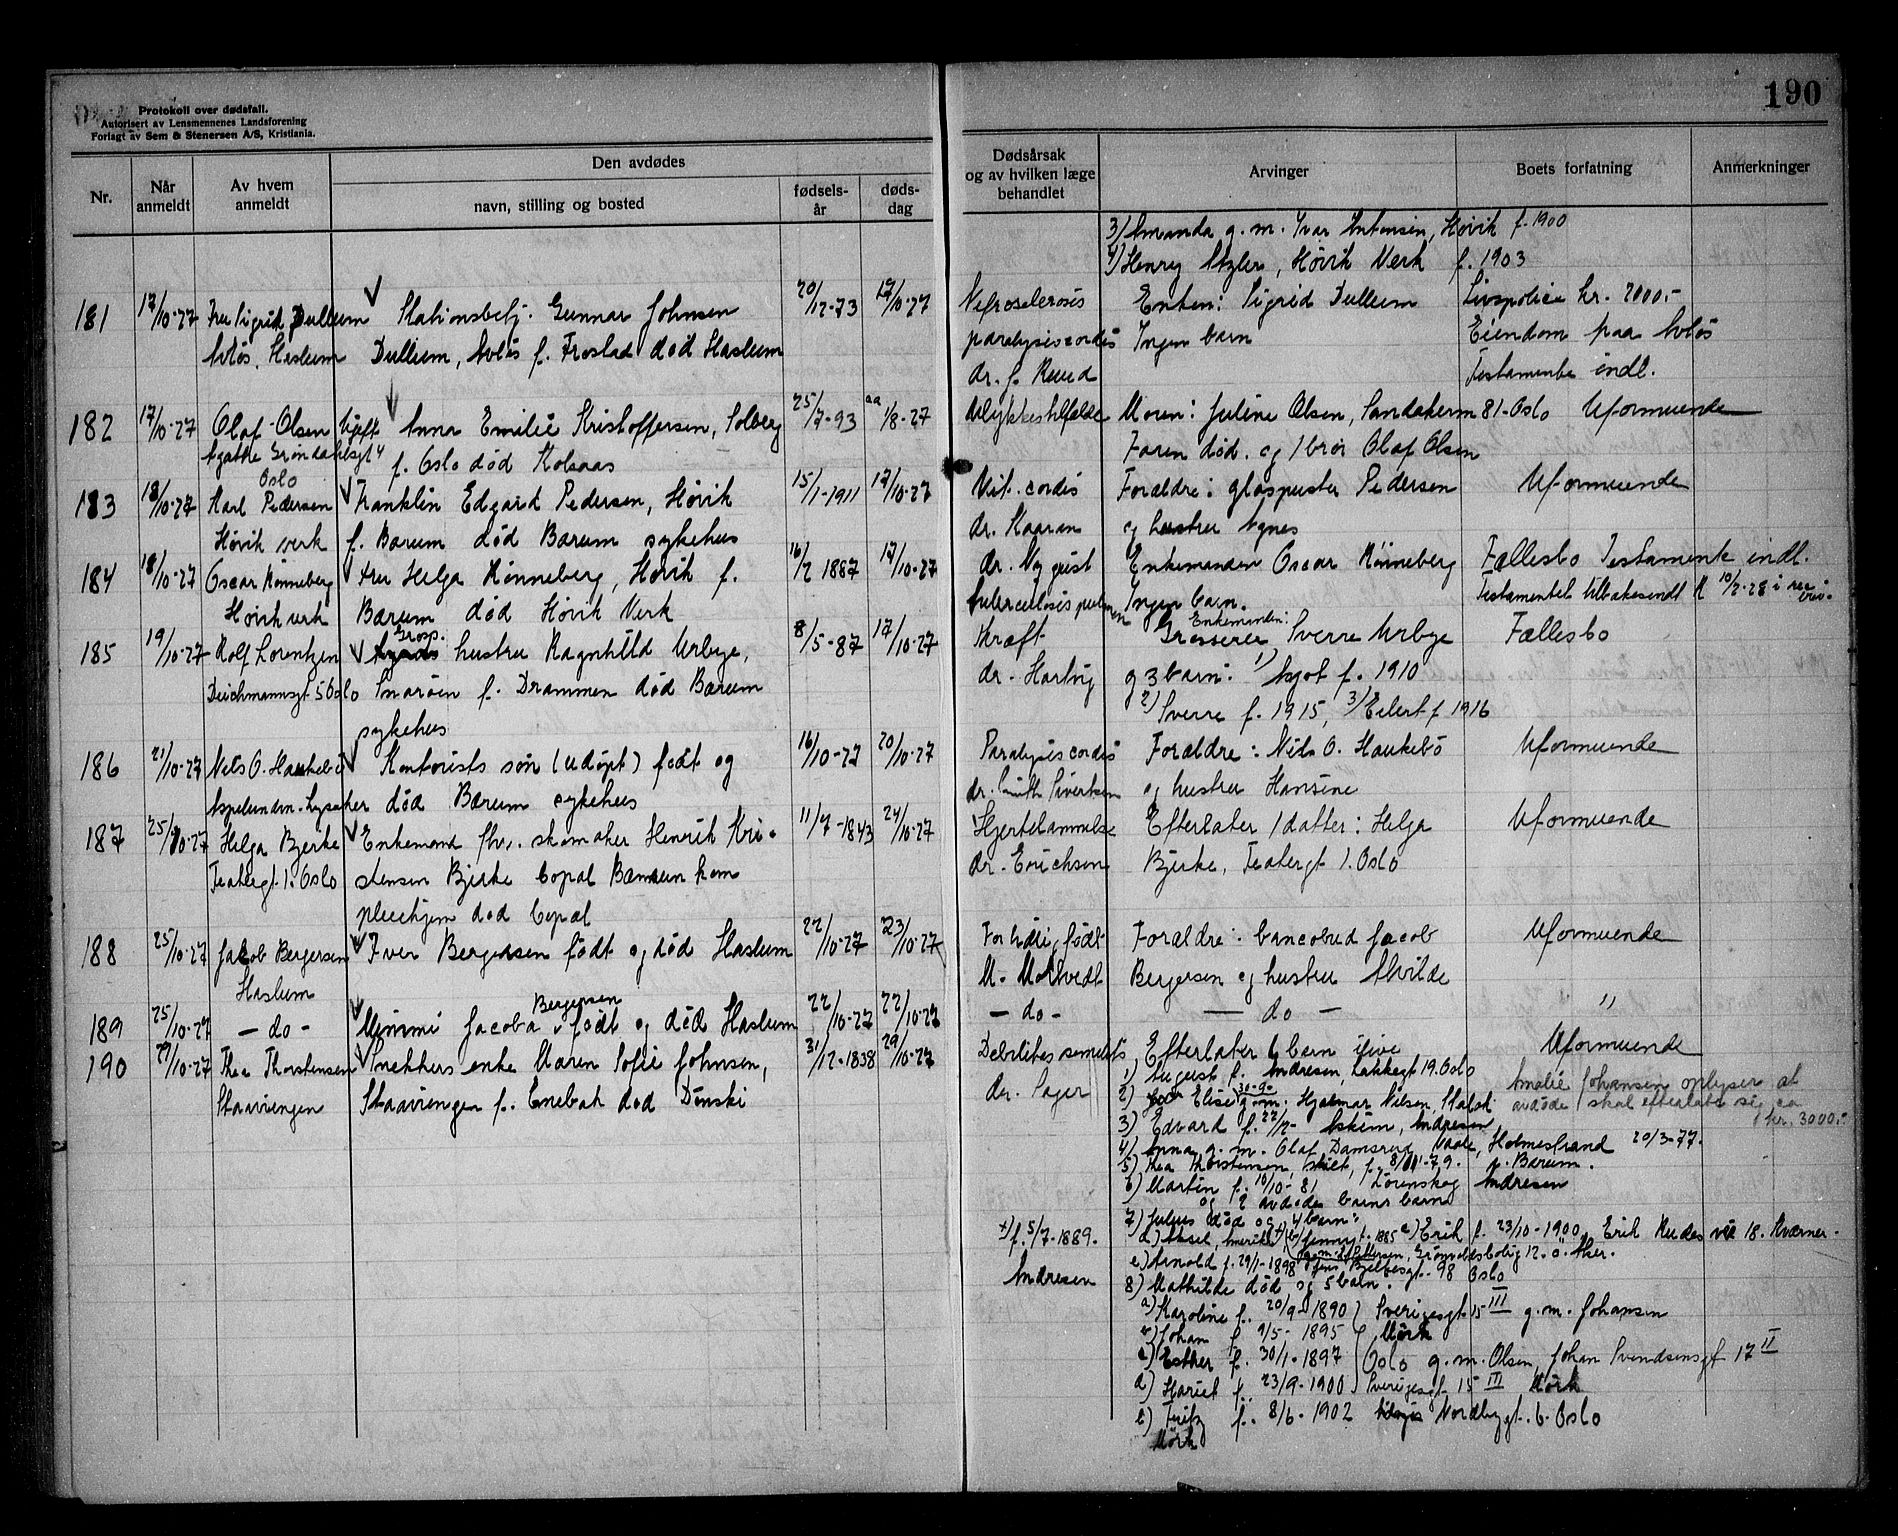 190
Protokoll over dødsfall.
Autorisert av Lensmennenes Landsforening
Forlagt av Sem & Stenersen A/S, Kristiania.
Nr.
Når anmeldt
Av hvem anmeldt
Den avdødes
navn, stilling og bosted
fødsels-år
døds-dag
Dødsårsak og av hvilken læge behandlet
Arvinger
Boets forfatning
Anmerkninger
3) Amanda g. m. Ivar Antonsen, Høvik f. 1900
4) Henry, Høvik Verk f. 1903
181 17/10-27 Fru Sigrid Dullum Stationsbetj. Gunnar Johnsen 20/12-73 17/10-27 Nefrosclerosis Enken: Sigrid Dullum Livspolice kr. 2000.-
Avløs, Haslum Dullum, Avløs f. Frostad død Haslum paralysis cordis Ingen barn Eiendom paa Avløs
dr. J. Ruud Testamente indl.
182 17/10-27 Olaf Olsen Ugift Anna Emilie Kristoffersen, Solberg 25/7-93 aa 1/8-27 Ulykkestilfælde Moren: Juline Olsen, Sandakervn 81-Oslo Uformuende
Agathe Grøndahlsgt 4 f. Oslo død Kolsaas Faren død. og 1 bror Olaf Olsen
Oslo
183 18/10-27 Karl Pedersen Franklin Edgard Pedersen, Høvik 15/1-1911 17/10-27 Vit. cordis Forældre: glaspuster Pedersen Uformuende
Høvik verk f. Bærum død Bærum sykehus dr. Kaaran og hustru Agnes
184 18/10-27 Oscar Rønneberg Fru Helga Rønneberg, Høvik f. 16/2 1887 17/10-27 dr. Nyquist Enkemanden Oscar Rønneberg Fællesbo Testamente indl.
Høvik verk Bærum død Høvik Verk tuberculosis pulmon Ingen barn. Testamentet tilbakesendt 10/2-28 i
185 19/10-27 Rolf Lorentzen Gross. hustru Ragnhild Urbye, 8/5-87 17/10-27 Kræft Enkemanden: Grosserer Sverre Urbye Fællesbo
Deichmannsgt 5 Oslo Snarøen f. Drammen død Bærum dr. Hartvig og 3 barn: 1) f. 1910
sykehus 2) Sverre f. 1915, 3) Eilert f 1916
186 21/10-27 Nils O. Haukebø Kontorists søn (udøpt) født og 16/10-27 20/10-27 Paralysis cordis Forældre: Nils O. Haukebø Uformuende
Lysaker død Bærum sykehus dr. Smith Sivertsen og hustru Hansine
187 25/10-27 Helga Bjerke Enkemand fhv. skomaker Henrik Kri- 11/7-1843 24/10-27 Hjertelammelse Efterlater 1 datter: Helga Uformuende
Teatergt 1. Oslo stensen Bjerke Bærum kom dr. Erichsen Bjerke, Teatergt 1. Oslo
pleiehjem død
188 25/10-27 Jacob Bergersen Iver Bergersen født og død Haslum 22/10-27 23/10-27 For tidlig født Forældre: Jacob Uformuende
Haslum Bergersen og hustru Alvilde
189 25/10-27 - do - Jacoba Bergersen født og død Haslum 22/10-27 22/10-27 - do - - do - "
190 29/10-27 Thea Thorstensen Snekkers enke Maren Sofie Johnsen, 31/12-1838 29/10-27 Debilitas senilis Efterlater 6 barn ilive Uformuende
Staaviengen Staaviengen f. Enebak død Dønski dr. Sager
1) August f. Andresen, Lakkegt 19. Oslo
Amalie Johansen oplyser at
2) Elise g. m. Hjalmar Nilsen,
avdøde skal efterlate sig ca
kr. 3000.-
3) Edvard f. Askim, Andresen
4) Anna g. m. Olaf Damsrud, Vaale, Holmestrand 20/3-77.
5) Thea Thorstensen, f. 8/11-79. f. Bærum.
6) Martin f. 10/10-81 Lørenskog Andresen
og 2 avdødes barns barn
7) Julius død og 4 barn:
x) f. 5/7-1889. Andresen
a) Aksel, Amerika x) b) Jenny f. 1885 c) Erik f. 23/10-1900, Erik Ruds vei 18. Kværner-
e) Arnold f. 29/1-1898 Jens Bjelkesgt. 98 Oslo
8) Mathilde død og 5 barn.
a) Karoline f. 20/9-1890 Sverigesgt 15 III g. m. Johansen
b) Johan f. 9/5-1895 Mørk
c) Esther f. 30/1-1897 Oslo g. m. Olsen, Johan Svendsensgt 17 II
d) Hariet f. 23/9-1900 Sverigesgt 15 III Mørk
e) Fritz f. 8/6-1902 Nordbygt. 6. Oslo
Mørk